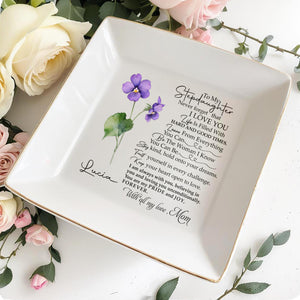 To My
Stepdaughter
Never forget that
I LOVE YOU
Life is Filled With
HARD AND GOOD TIMES
Learn From Everything
You Can.
Be The Woman I Know
You Can Be.
Stay kind, hold onto your dreams.
Find yourself in every challenge.
Keep your heart open to love.
I am always with you, believing in
you and loving you unconditionally.
You are my PRIDE and JOY.
FOREVER.
With all my love, Mom
Lucia